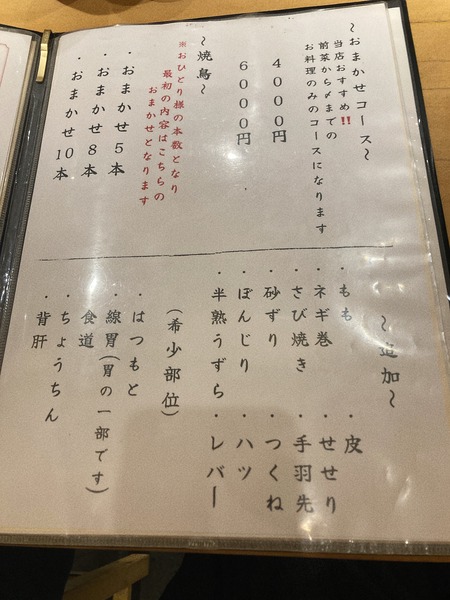 ～おまかせコース～
当店おすすめ!!
前菜から〆までの
お料理のみのコースになります
4000円
6000円
～焼鳥～
※おひとり様の本数となり
最初の内容はこちらの
おまかせとなります
・おまかせ5本
・おまかせ8本
・おまかせ10本
～追加～
・もも ・皮
・ネギ巻 ・せせり
・さび焼き ・手羽先
・砂ずり ・つくね
・ぼんじり ・ハツ
・半熟うずら ・レバー
(希少部位)
・はつもと
・線胃(胃の一部です)
・食道
・ちょうちん
・背肝